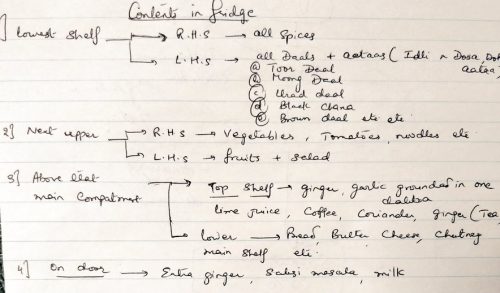 Contents in fridge
1] Lowest shelf → R.H.S → all Spices
→ L.H.S → all Daals + aataas ( Idli n Dosa,
aataa
(a) Toor Daal
(b) Moong Daal
(c) Urad daal
(d) Black Chana
(e) Brown daal etc etc.
2] Next upper → R.H.S → Vegetables, Tomatoes, noodles etc.
→ L.H.S → fruits + salad
3] Above that → Top shelf → ginger, garlic grounded in one
main Compartment dabba
lime juice, Coffee, Coriander, ginger (Tea
→ lower → Bread, Butter Cheese, Chutney
main shelf etc.
4] On door → Extra ginger, sabji masala, milk